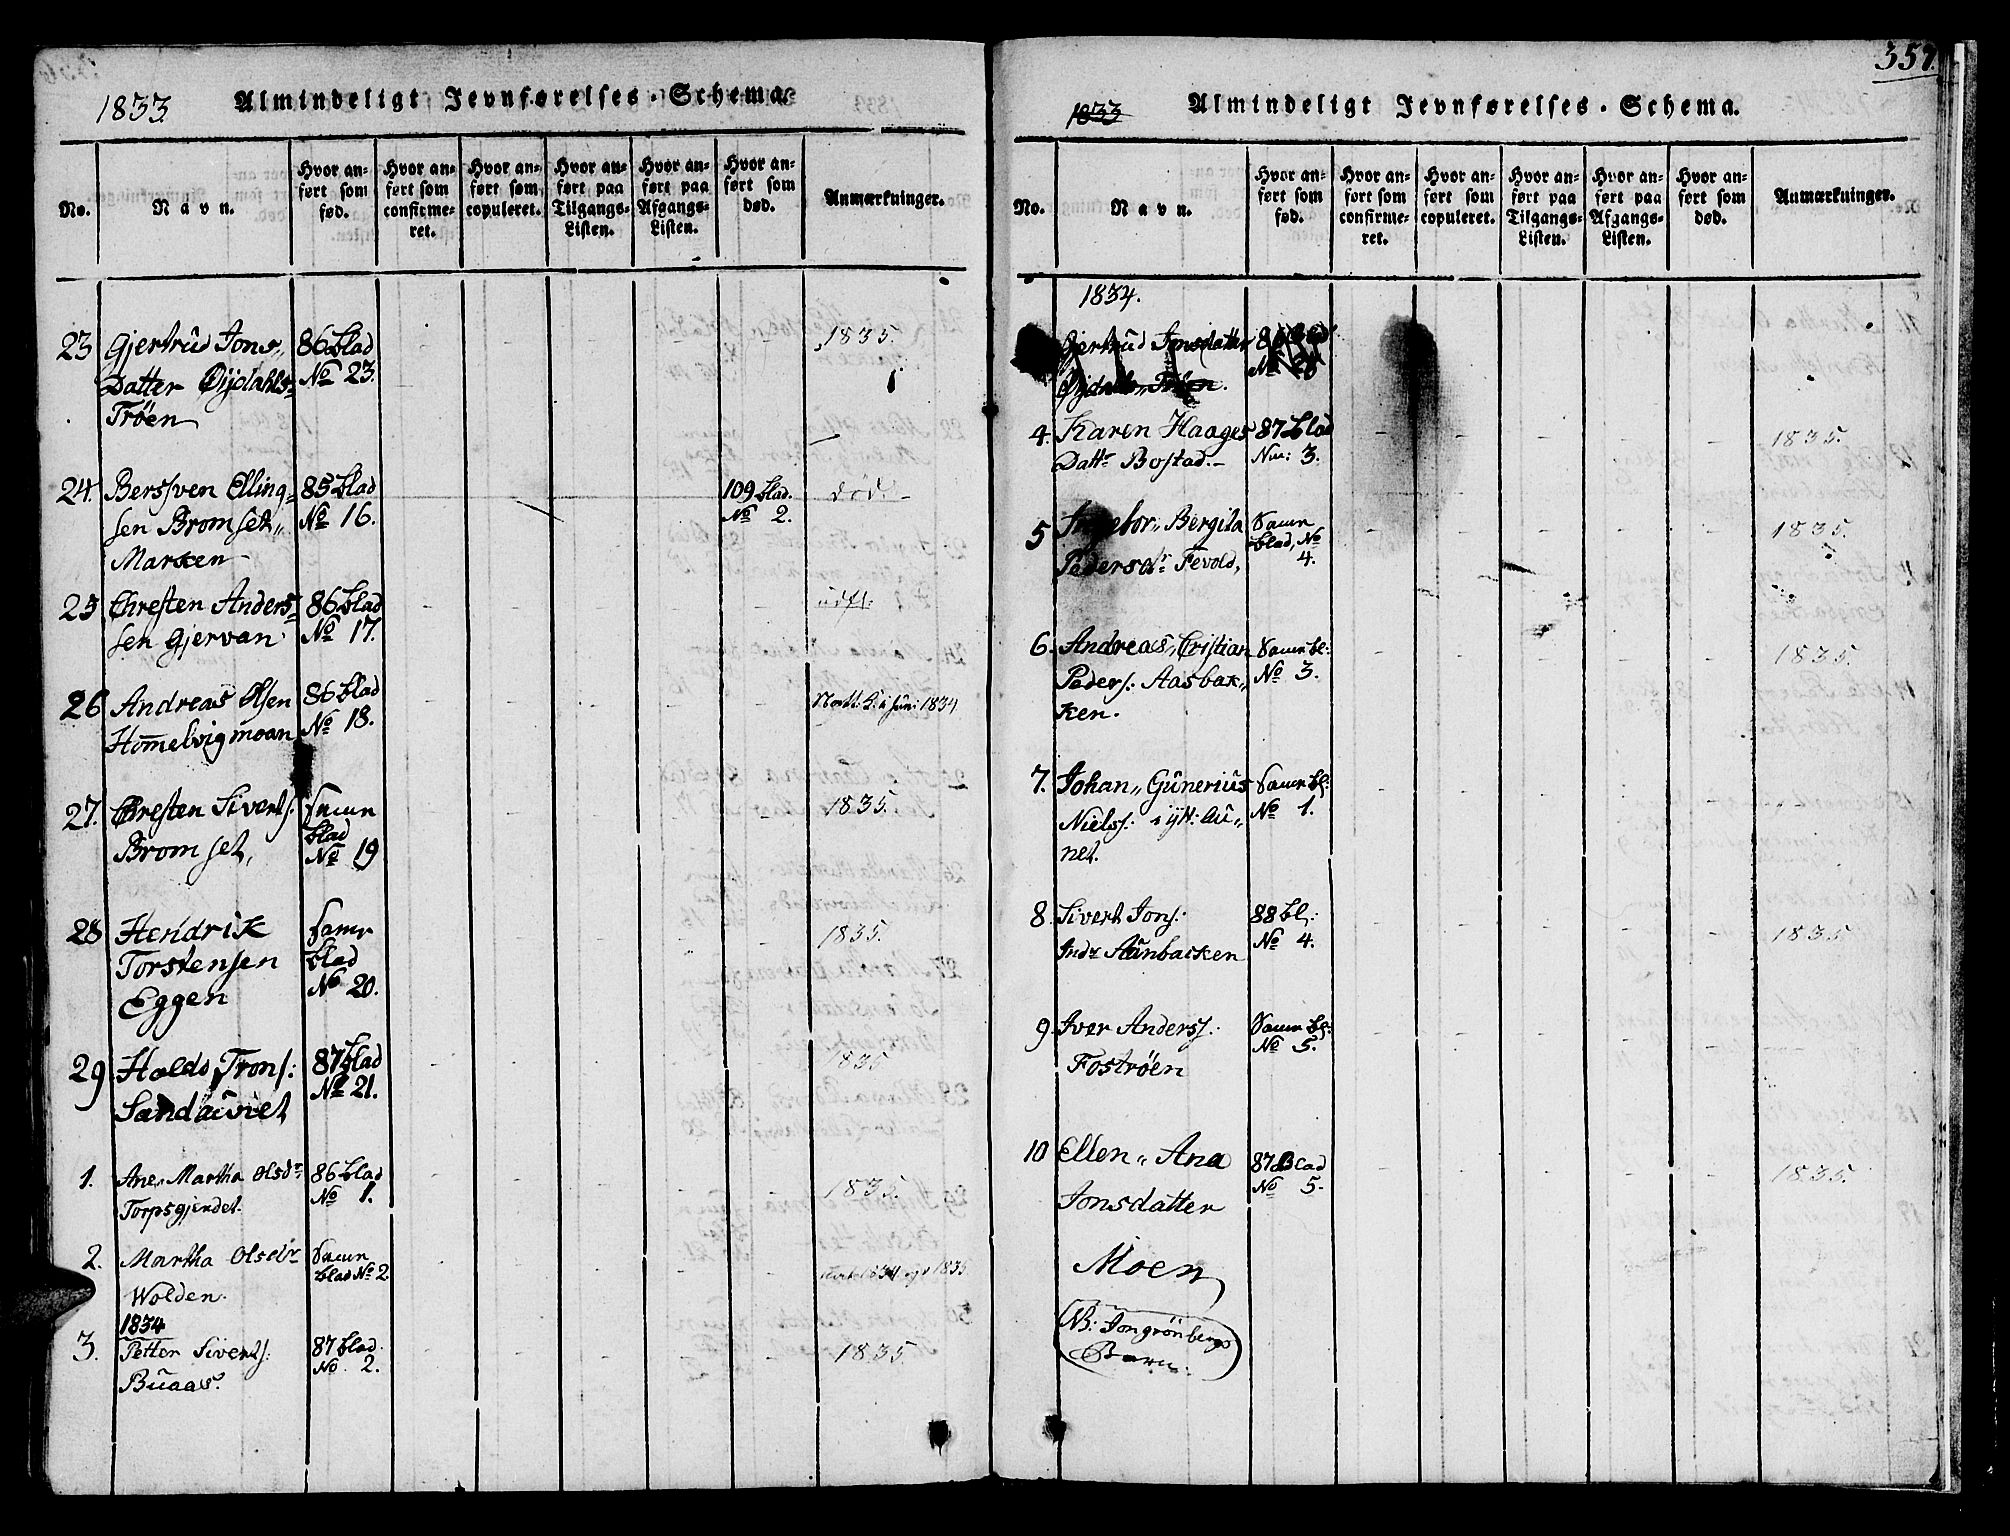 1833.
Almindeligt Jevnførelses-Schema.
No.
Navn.
Hvor anført som fød.
Hvor anført som confirmeret.
Hvor anført som copuleret.
Hvor anført paa Tilgangs-Listen.
Hvor anført paa Afgangs-Listen.
Hvor anført som død.
Anmærkninger.
23 Gjertrud Jons„ 86 blad 1835.
Datter Øydahls= No 23.
Tröen
24. Berssven Elling= 85 blad 109 blad. död.
sen Bromset„ No 16. No 2.
Marken
25 Chresten Anders= 86 blad udfl.
sen Gjervan No 17.
26 Andreas Olsen 86 blad 1834
Homelvigmoan No 18.
27. Chresten Siverts: samm 1835.
Bromset, blad
No 19
28 Hendrik samm 1835.
Torstensen blad
Eggen No 20.
29 Trons: 87 blad 1835
No 21.
1. Ane„ Martha Olsdr 86 blad 1835.
Torpsgjerdet. No 1.
2. Martha Olsdr Samm
blad No 2. 1834 1835
Wolden.
1834
3. Petter Siverts: 87 blad. 1835.
Buaas. No. 2.
357.
1833
Almindeligt Jevnførelses-Schema.
No.
Navn.
Hvor anført som fød.
Hvor anført som confirmeret.
Hvor anført som copuleret.
Hvor anført paa Tilgangs-Listen.
Hvor anført paa Afgangs-Listen.
Hvor anført som død.
Anmærkninger.
1834.
Gjertrud Jonsdatter 86
Trøen. No
4. Karen Haages 87 blad 1835.
Dattr Bostad.- Nm: 3.
5 Ingebor„ Bergita Samm 1835.
blad, No
Pedersdr Fevold, 4.
6. Andreas„ Cristian Samm bl: 1835.
Peders: Aasbak„ No 3.
ken.
7. Johan„ Gunerius Samm bl:
Niels: iytt: Au„ No 1.
net.
8. Sivert Jons: 88 bl: 1835
Indr Aunbakken No 4.
9. Iver Anders: Samm bl:
Fostrøen No 5.
10 Ellen„ Ana 87 Blad 1835.
Jonsdatter No 5.
Moen
NB: Jongrönbergs
Barn.